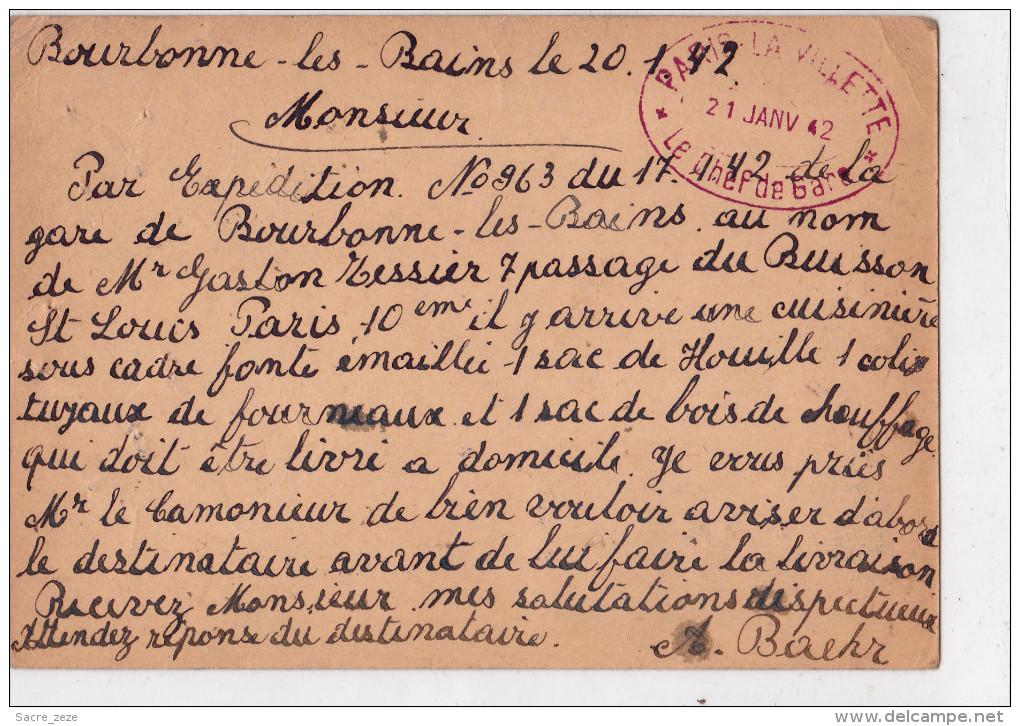 Bourbonne-les-Bains le 20.1.42
PARIS-LA VILLETTE
21 JANV 42
Le Chef de Gare
Monsieur
Par Expédition No 963 du 17.1.42 de la
gare de Bourbonne-les-Bains au nom
de Mr Gaston Tessier 7 passage du Buisson
St Louis Paris 10eme il y arrive une cuisinière
sous cadre fonte émaillée 1 sac de Houille 1 colis
tuyaux de fourneaux et 1 sac de bois de chouffage
qui doit être livré a domicile. Je vous priés
Mr le Camonieur de bien vouloir aviser d'abord
le destinataire avant de lui faire la livraison
Recevez Monsieur mes salutations
Attendez réponse du destinataire.
A. Baehr
Sacre_zeze
www.delcampe.net